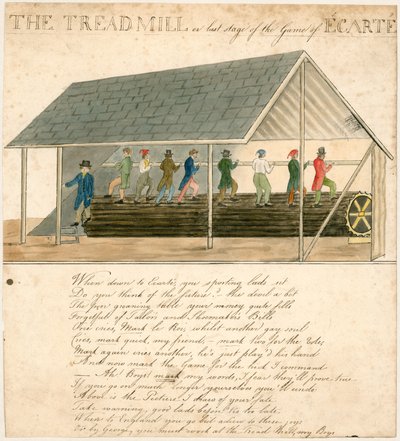 THE TREADMILL or last stage of the Game of ÉCARTÉ
When down to Ecarté, you sporting lads sit
Do you think of the future? the devil a bit
The poor groaning table your money quite fills
Forgetful of Tailors and Shoemakers Bills
One cries, Mark be Ken, whilst another gay soul
Cries, mark quick, my friend, mark two for the Vole;
Mark again cries another, he's just play'd his hand
And now mark the Game for the luck I command
Ah! Boys mark my words, I fear they'll prove true
If you go on, much longer yourselves you'll undo
Above is the Picture I draw of your fate
Take warning, good lads before 'tis too late
to England you go but adieu to these joys
Or by George, you must work at the Tread Mill, my Boys